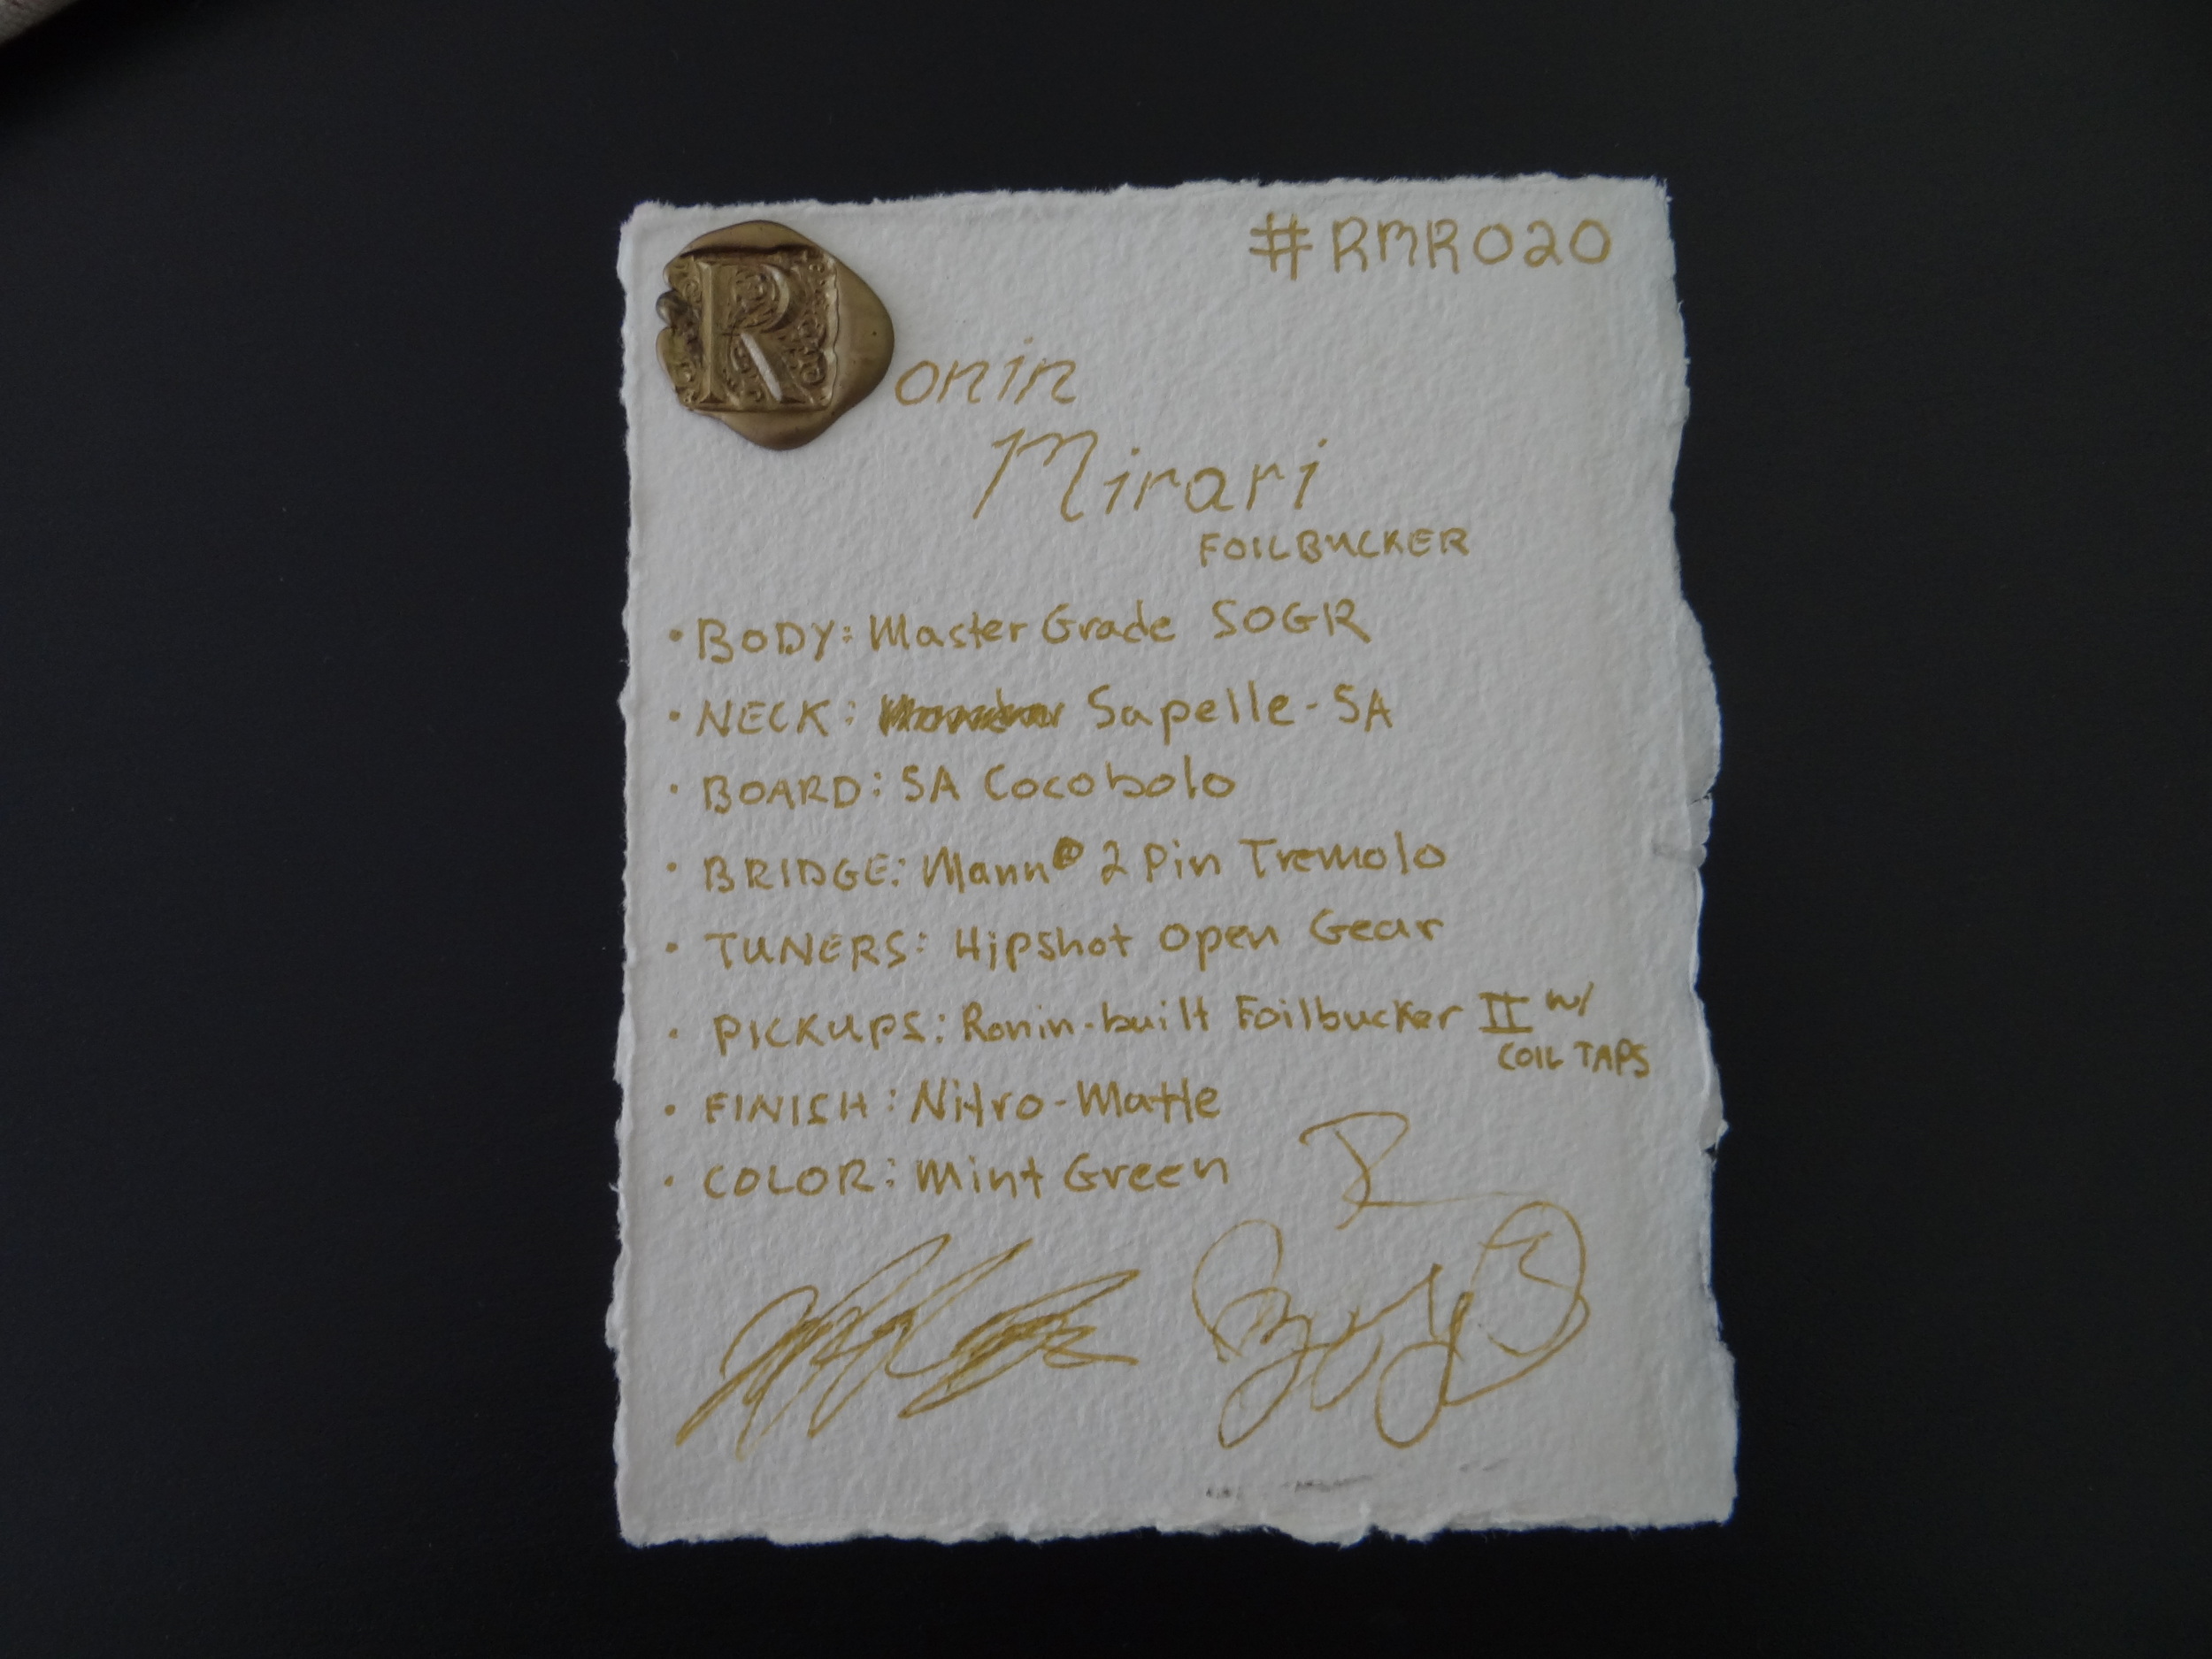 #RMR020
Ronin
Mirari
FOILBUCKER
• BODY: Master Grade SOGR
• NECK: Sapelle-SA
• BOARD: SA Cocobolo
• BRIDGE: Mann 2 Pin Tremolo
• TUNERS: Hipshot Open Gear
• PICKUPS: Ronin-built Foilbucker II w/
COIL TAPS
• FINISH: Nitro-Matte
• COLOR: Mint Green